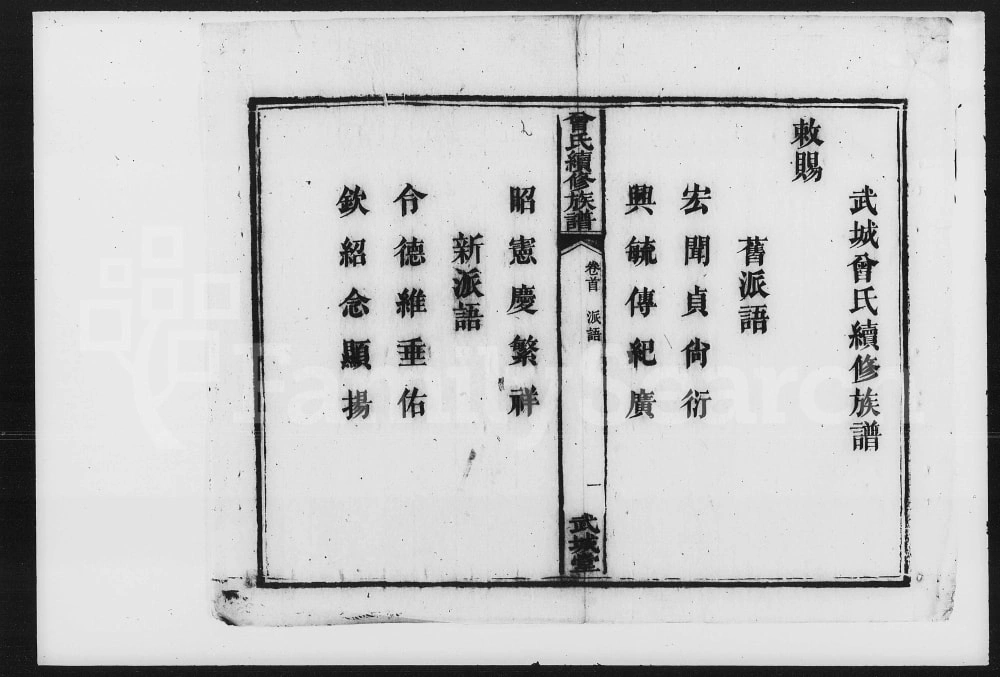 武城曾氏續修族譜
敕賜
舊派語
宏聞貞尙衍
興毓傳紀廣
曾氏續修族譜
卷首 派語
一
武城堂
昭憲慶繁祥
新派語
令德維垂佑
欽紹念顯揚
FamilySearch